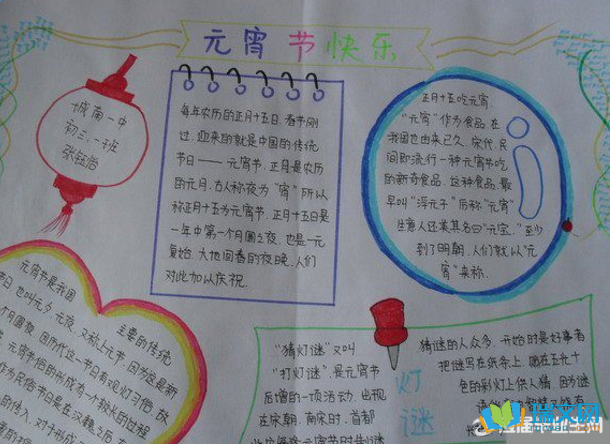 元宵节快乐
城南一中
初三、一班
张钰浩
每年农历的正月十五日,春节刚
过,迎来的就是中国的传统
节日——元宵节,正月是农历
的元月,古人称夜为“宵”所以
称正月十五为元宵节,正月十五日是
一年中第一个月圆之夜,也是一元
复始,大地回春的夜晚,人们
对此加以庆祝.
正月十五吃元宵,
“元宵”作为食品,在
我国也由来已久,宋代,民
间即流行一种元宵节吃
的新奇食品,这种食品,最
早叫“浮元子”后称“元宵”
生意人还美其名曰“元宝”,至少
到了明朝,人们就以“元
宵”来称.
元宵节是我国
主要的传统
节日,也叫元夕,元夜,又称上元节,因为这是新
月圆夜,因历代这一节日有观灯习俗,故
元宵节俗的形成有一个较长的过程
作为民俗节日是在汉魏之后
的传入,对于形成
“猜灯谜”又叫
“打灯谜”,是元宵节
后增的一项活动,出现
在宋朝,南宋时,首都
灯
谜
猜谜的人众多,开始时是好事者
把谜写在纸条上,贴在五光十
色的彩灯上供人猜,因为谜
瑞文网